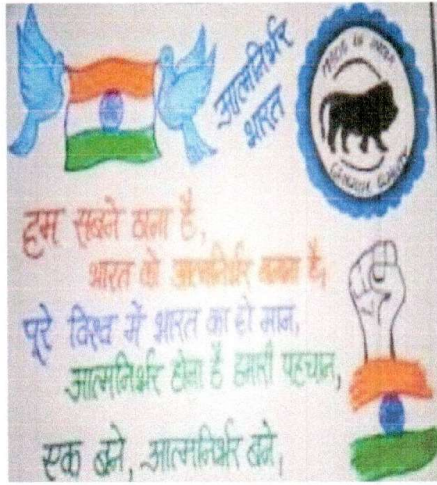 आत्मनिर्भर
भारत
MADE IN INDIA
GENUINE QUALITY
हम सबने ठाना है,
भारत को आत्मनिर्भर बनाना है,
पूरे विश्व में भारत का हो मान,
आत्मनिर्भर होना है हमारी पहचान,
एक बने, आत्मनिर्भर बने।